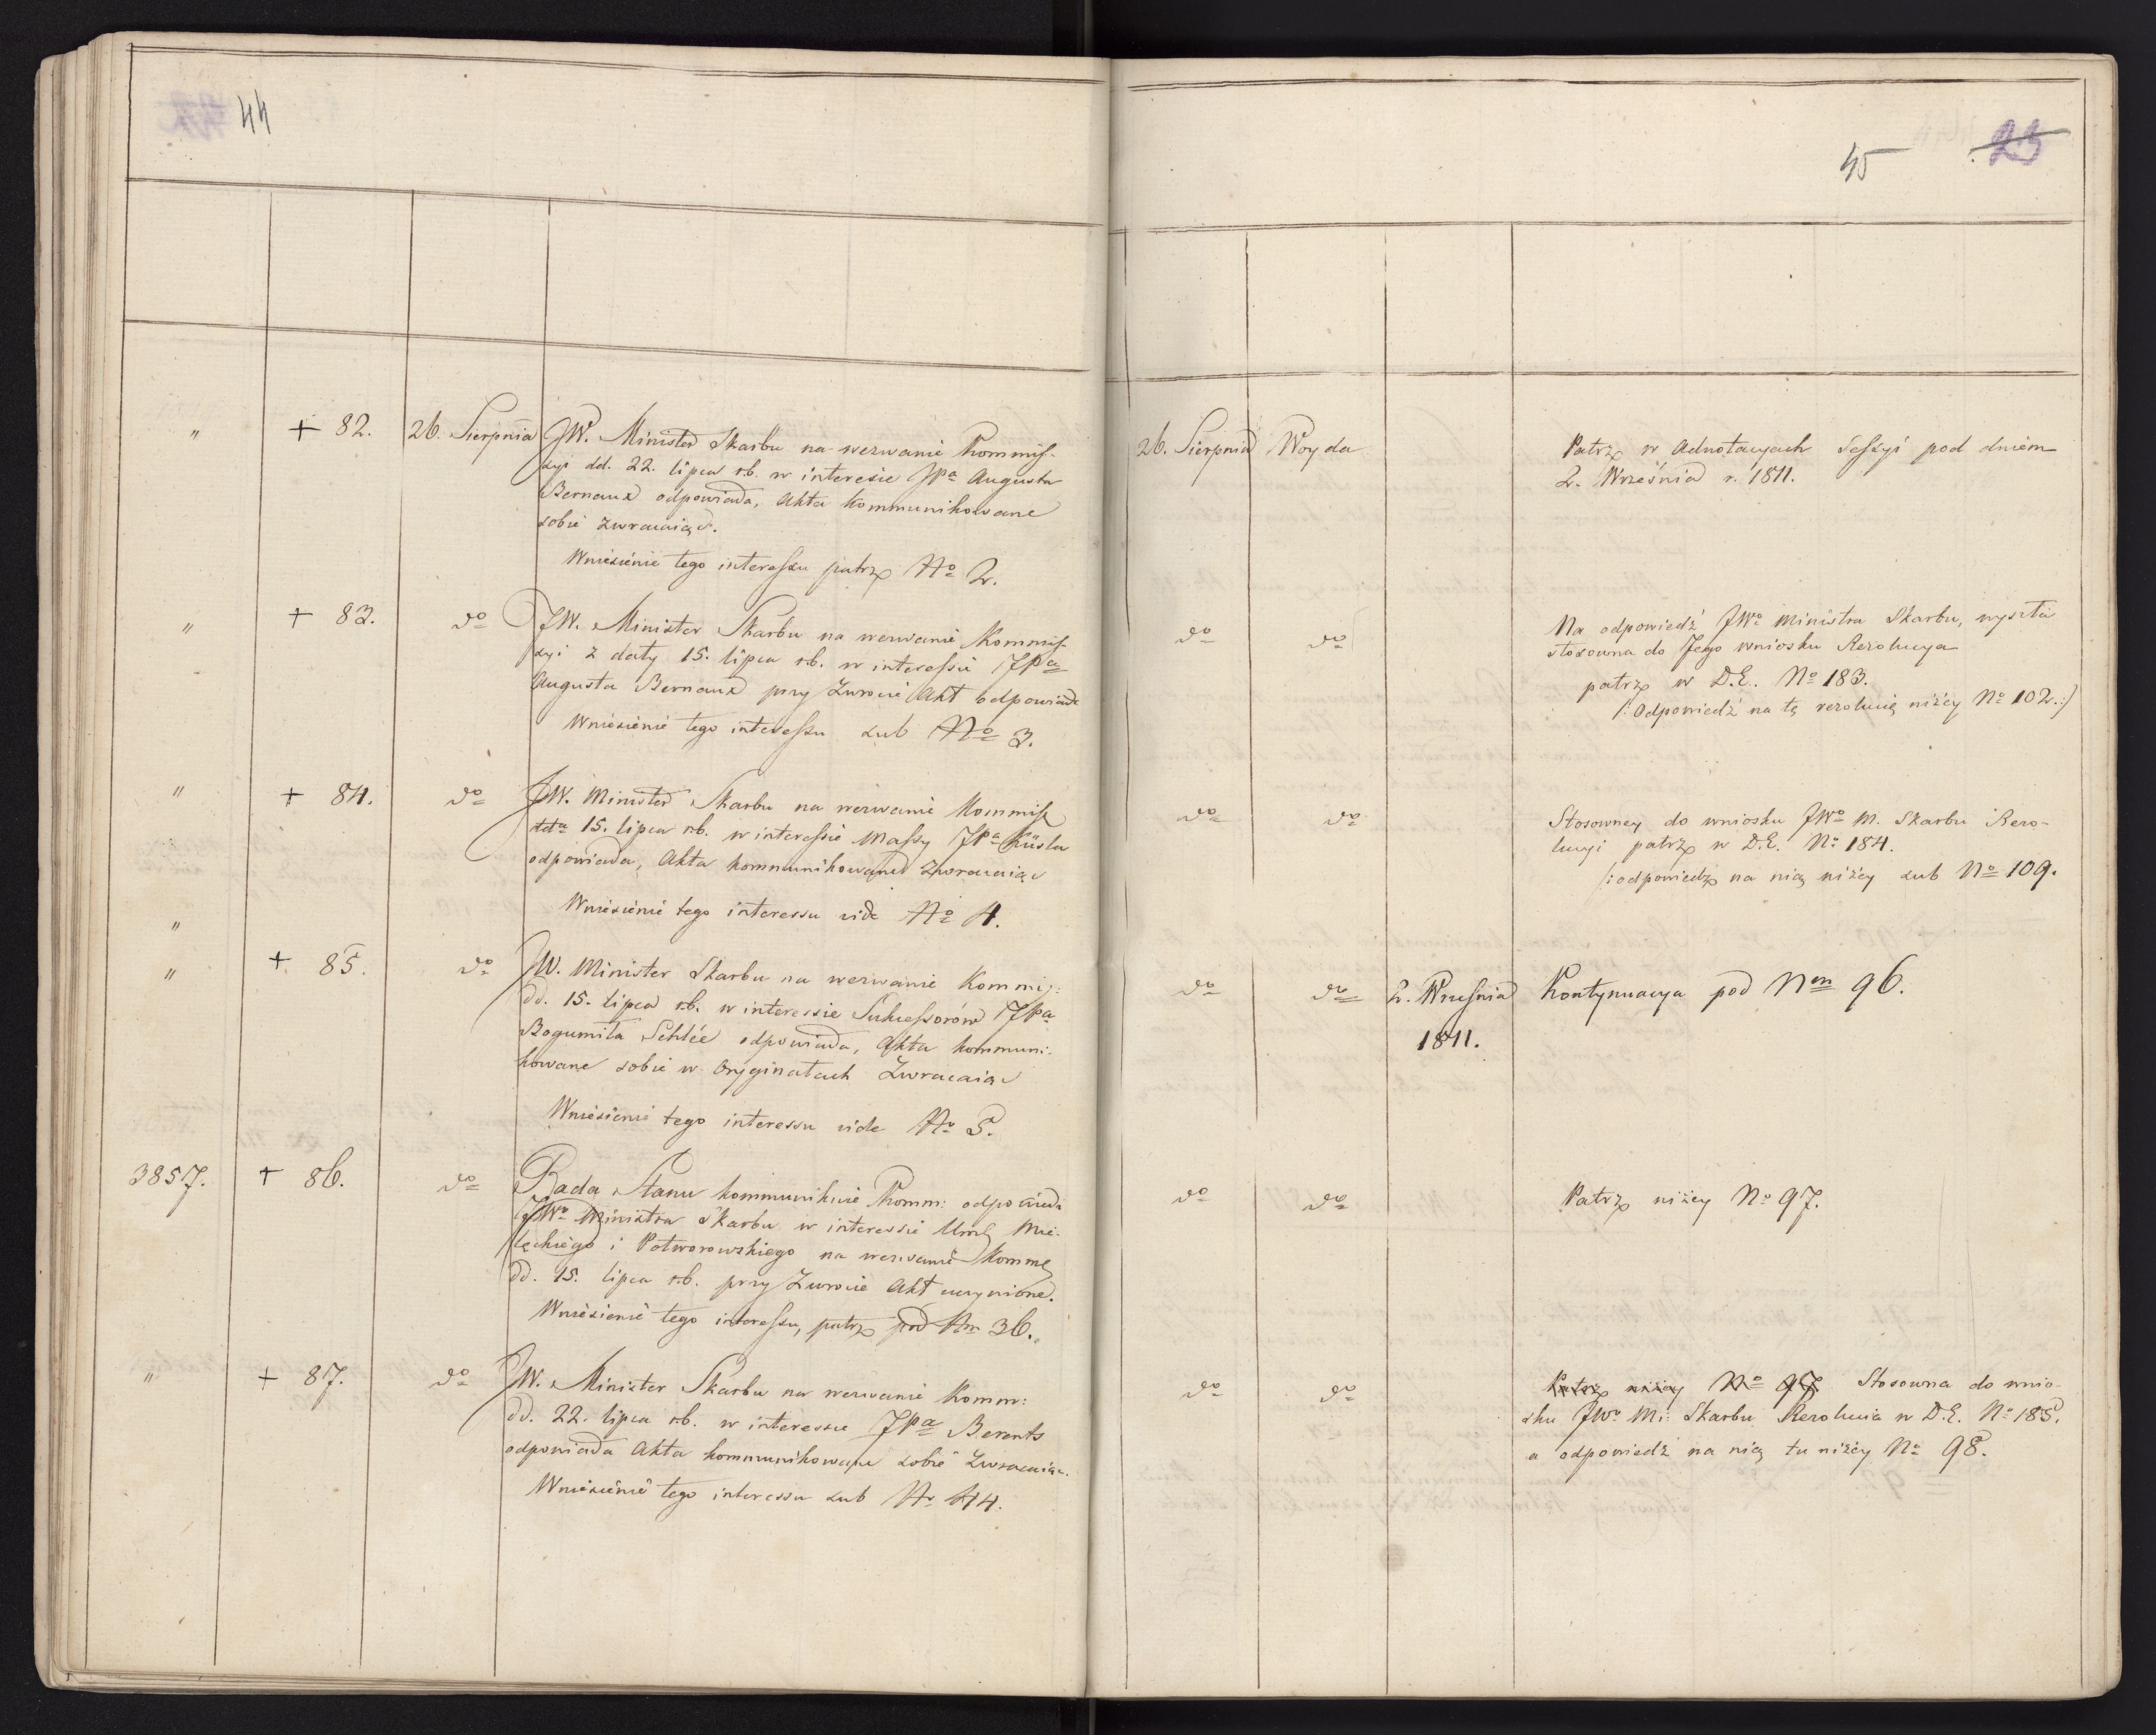 44
45 23
" + 82. 26. Sierpnia JW. Minister Skarbu na wezwanie Kommis-
syi dd. 22. lipca r.b. w interesie JPa Augusta
Bernaux odpowiada, Akta kommunikowane
sobie zwracaiąc.
Wniesienie tego interessu patrz No 2.
26. Sierpnia Woyda Patrz w Adnotacyach Sessyi pod dniem
2. Września r. 1811.
" + 83. do JW. Minister Skarbu na wezwanie Kommis-
syi z daty 15. lipca r.b. w interessie JPa
Augusta Bernaux przy Zwrocie Akt odpowiada
Wniesienie tego interessu sub No 3.
do do Na odpowiedź JWo Ministra Skarbu, wyszła
stosowna do Jego wniosku Rezolucya
patrz w D.E. No 183.
/: Odpowiedź na tę rezolucię niżéy No 102. :/
" + 84. do JW. Minister Skarbu na wezwanie Kommiss
ddto 15. lipca r.b. w interessie Massy JPa Küsla
odpowiada, Akta kommunikowane zwracaiąc
" Wniesienie tego interessu vide No 4.
do do Stosowney do wniosku JWo M. Skarbu Rezo-
lucyi patrz w D.E. No 184.
/: odpowiedz na nią niżéy sub No 109.
" + 85. do JW. Minister Skarbu na wezwanie Kommi:
dd. 15. lipca r.b. w interessie Sukcessorów JPa
Bogumiła Schlée odpowiada, Akta kommuni-
kowane sobie w Oryginałach Zwracaiąc
Wniesienie tego interessu vide No 5.
do do 2. Września Kontynuacya pod Nem 96.
1811.
3857. + 86. do Rada Stanu kommunikuie Komm: odpowiedź
JWo Ministra Skarbu w interessie Mie-
lęckiego i Potworowskiego na wezwanie Komm
dd. 15. lipca r.b. przy Zwrocie Akt uczynione.
Wniesienie tego interessu, patrz pod Nr 36.
do do Patrz niżey No 97.
" + 87. do JW. Minister Skarbu na wezwanie Komm:
dd. 22. lipca r.b. w interessie JPa Berents
odpowiada Akta kommunikowane sobie Zwracaiąc.
Wniesienie tego interessu sub Nr 44.
do do Patrz niżey No 97 Stosowna do wnio-
sku JWo Mi: Skarbu Rezolucia w D.E. No 185.
a odpowiedź na nią tu niżéy No 98.